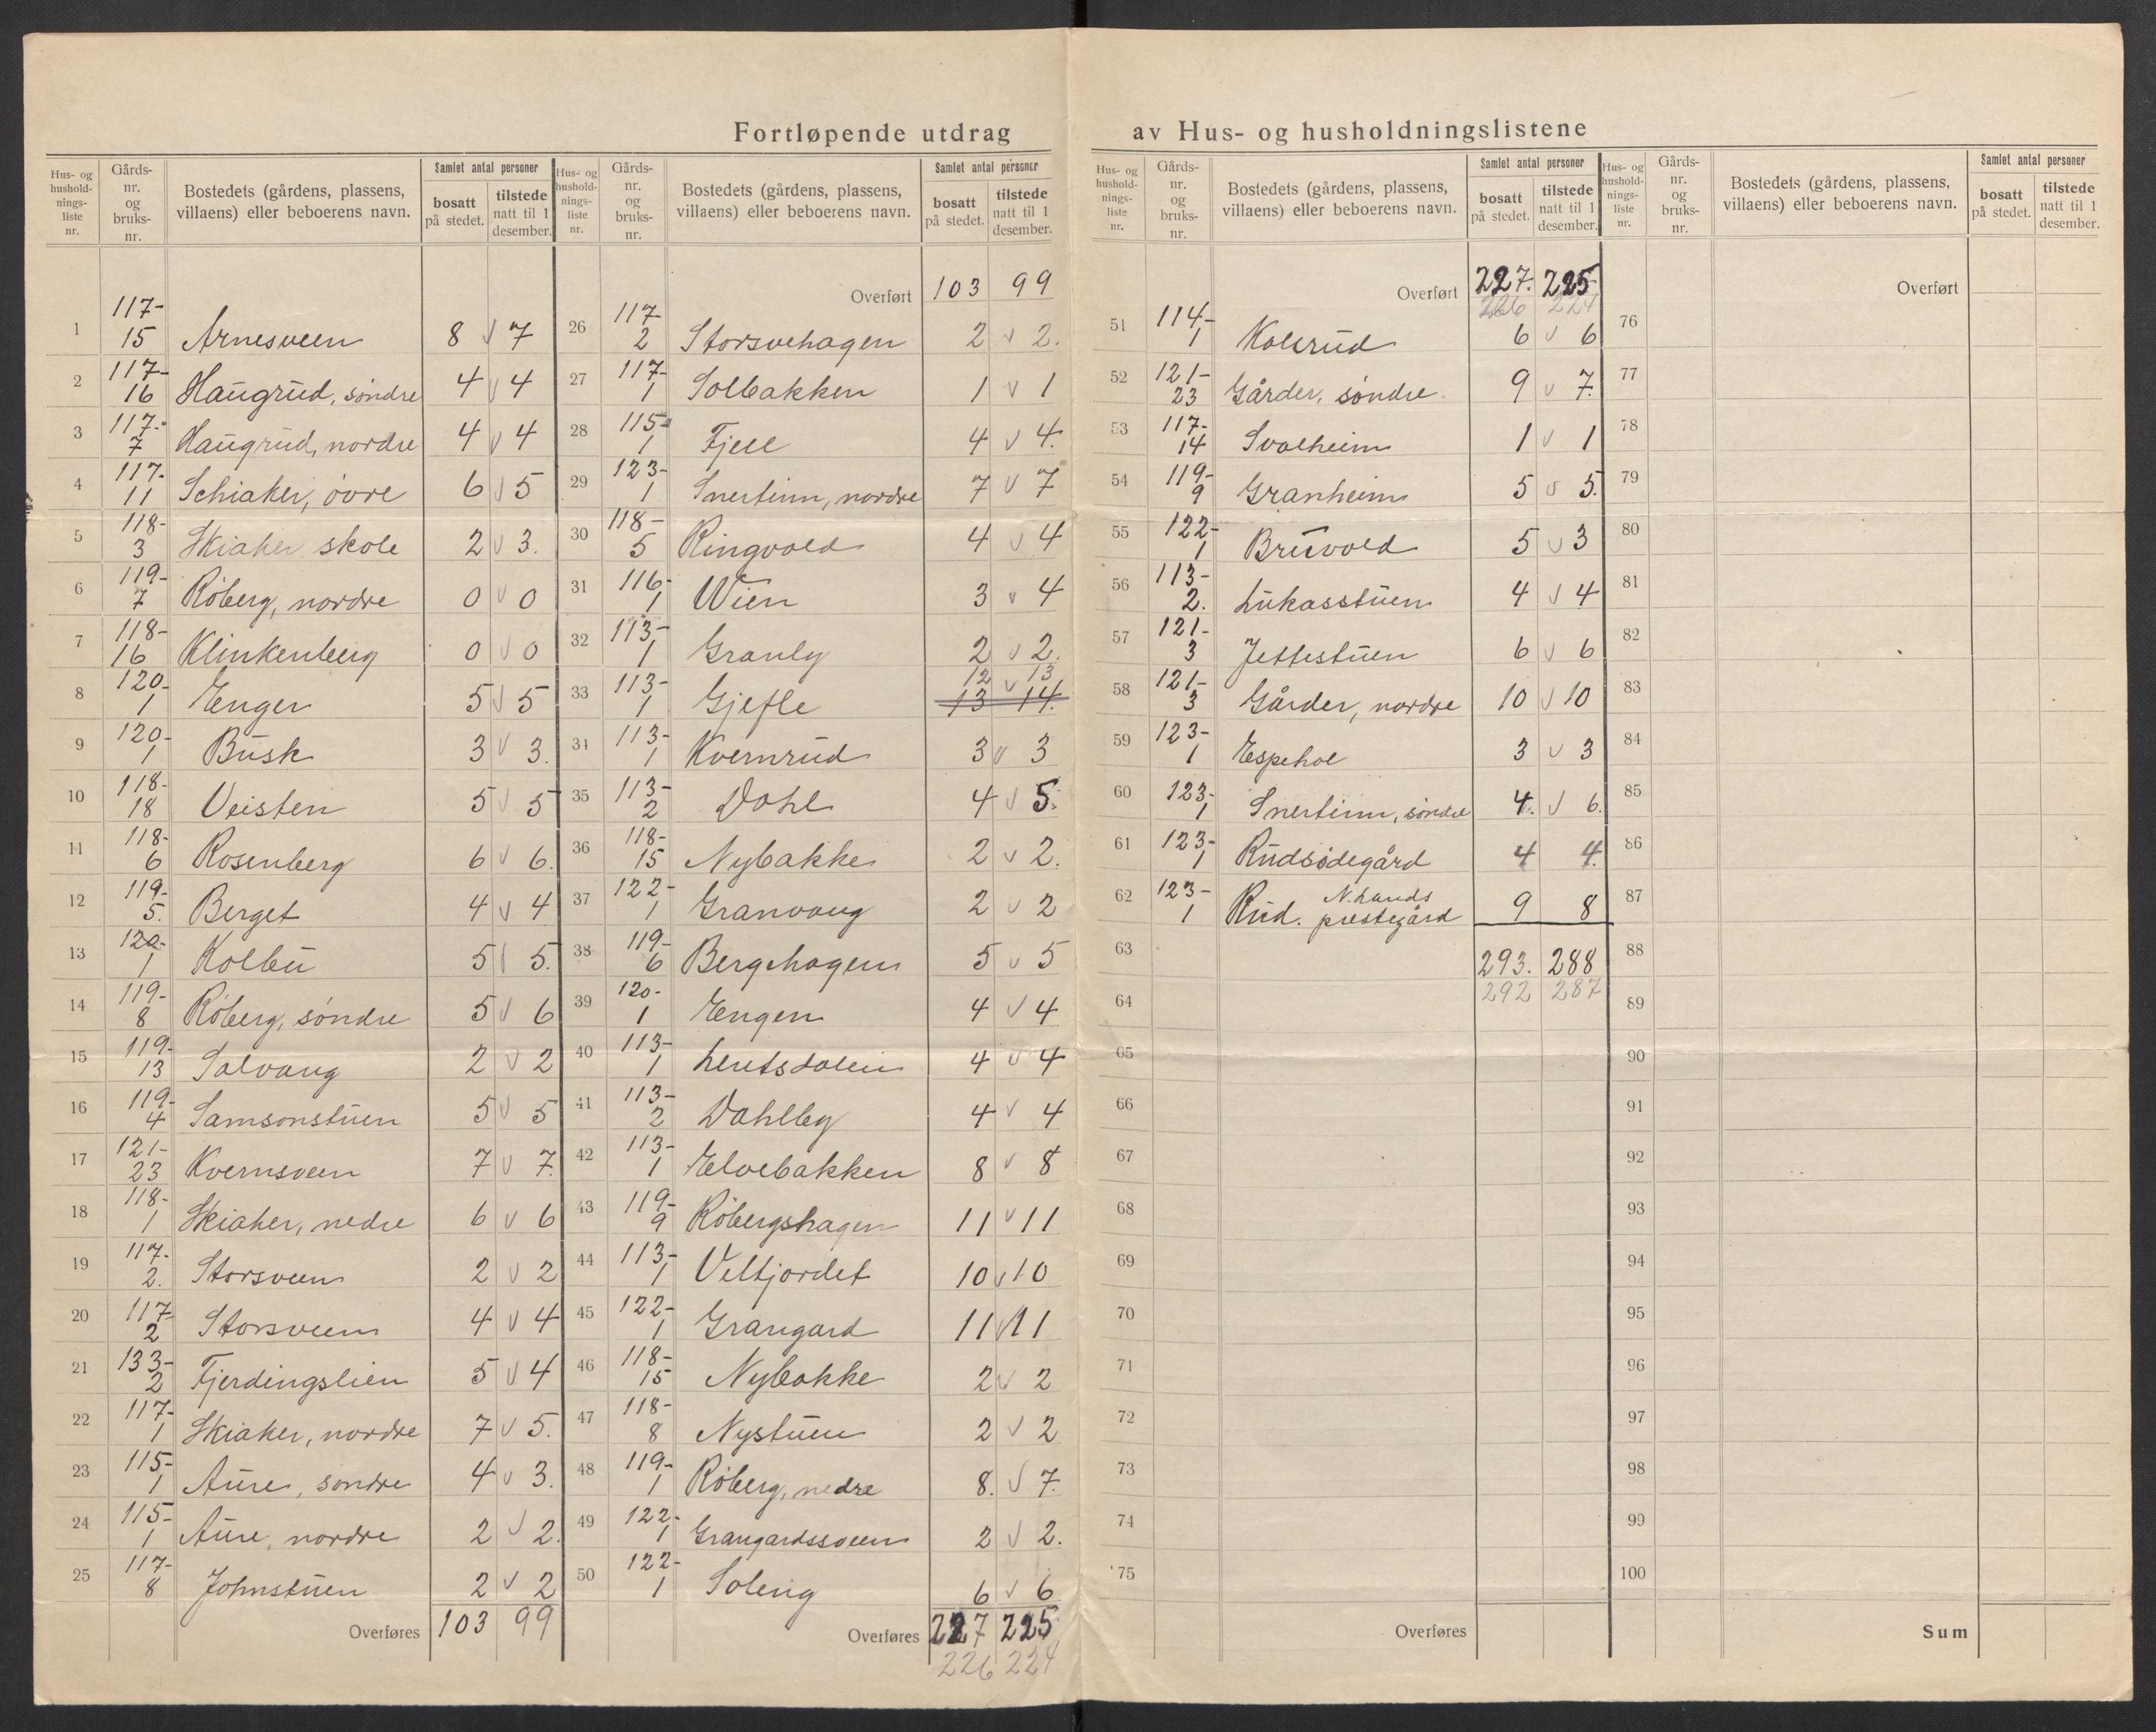 Fortløpende utdrag av Hus- og husholdningslistene
Hus- og hushold-nings-liste nr. | Gårds-nr. og bruks-nr. | Bostedets (gårdens, plassens, villaens) eller beboerens navn. | Samlet antal personer | bosatt på stedet. | tilstede natt til 1 desember.
1 117-15 Arnesveen 8 v 7
2 117-16 Haugrud, søndre 4 v 4
3 117-7 Haugrud, nordre 4 v 4
4 117-11 Schiaker, øvre 6 v 5
5 118-3 Skiaker skole 2 v 3.
6 119-7 Røberg, nordre 0 v 0
7 118-16 Klinkenberg 0 v 0
8 120-1 Enger 5 v 5
9 120-1 Busk 3 v 3.
10 118-18 Veisten 5 v 5
11 118-6 Rosenberg 6 v 6.
12 119-5. Berget 4 v 4
13 120-1 Kolbu 5 5.
14 119-8 Røberg, søndre 5 v 6
15 119-13 Solvang 2 v 2
16 119-4 Samsonstuen 5 v 5
17 121-23 Kvernsveen 7 v 7.
18 118-1 Skiaker, nedre 6 v 6
19 117-2. Storsveen 2 v 2
20 117-2 Storsveen 4 v 4
21 133-2 Fjerdingslien 5 v 4
22 117-1 Skiaker, nordre 7 v 5.
23 115-1 Aure, søndre 4 v 3.
24 115-1 Aure, nordre 2 v 2.
25 117-8 Johnstuen 2 v 2
Overføres 103 99
Hus- og hushold-nings-liste nr. | Gårds-nr. og bruks-nr. | Bostedets (gårdens, plassens, villaens) eller beboerens navn. | Samlet antal personer | bosatt på stedet. | tilstede natt til 1 desember.
Overført 103 99
26 117-2 Storsvehagen 2 v 2.
27 117-1 Solbakken 1 v 1
28 115-1 Fjell 4 v 4.
29 123-1 Snertinn, nordre 7 v 7
30 118-5 Ringvold 4 v 4
31 116-1 Wien 3 v 4
32 113-1 Granly 2 v 2.
33 113-1 Gjefle 12 v 13 13 14.
34 113-1 Kvernrud 3 v 3
35 113-2 Dahl 4 v 5.
36 118-15 Nybakke 2 v 2.
37 122-1 Granvang 2 v 2
38 119-6 Bergehagen 5 v 5
39 120-1 Engen 4 v 4
40 113-1 Lentsdalen 4 v 4
41 113-2 Dahlby 4 v 4
42 113-1 Elvebakken 8 v 8
43 119-9 Røbergshagen 11 v 11
44 113-1 Veltjordet 10 v 10
45 122-1 Grangard 11 v 11
46 118-15 Nybakke 2 v 2
47 118-8 Nystuen 2 v 2
48 119-1 Røberg, nedre 8. v 7.
49 122-1 Grangardssveen 2 v 2.
50 122-1 Soleng 6 v 6
Overføres 227 225
226 224
Hus- og hushold-nings-liste nr. | Gårds-nr. og bruks-nr. | Bostedets (gårdens, plassens, villaens) eller beboerens navn. | Samlet antal personer | bosatt på stedet. | tilstede natt til 1 desember.
Overført 227. 225
226 224
51 114-1 Kolsrud 6 v 6
52 121-23 Gårder, søndre 9 v 7.
53 117-14 Svalheim 1 v 1
54 119-9 Granheim 5 v 5.
55 122-1 Bruvold 5 v 3
56 113-2. Lukasstuen 4 v 4
57 121-3 Jettestuen 6 v 6
58 121-3 Gårder, nordre 10 v 10
59 123-1 Espehol 3 v 3
60 123-1 Snertinn, søndre 4. v 6.
61 123-1 Rudsødegård 4 4.
62 123-1 Rud. N. Lands prestegård 9 8
63 293. 288
292 287
64
65
66
67
68
69
70
71
72
73
74
75
Overføres
Hus- og hushold-nings-liste nr. | Gårds-nr. og bruks-nr. | Bostedets (gårdens, plassens, villaens) eller beboerens navn. | Samlet antal personer | bosatt på stedet. | tilstede natt til 1 desember.
Overført
76
77
78
79
80
81
82
83
84
85
86
87
88
89
90
91
92
93
94
95
96
97
98
99
100
Sum